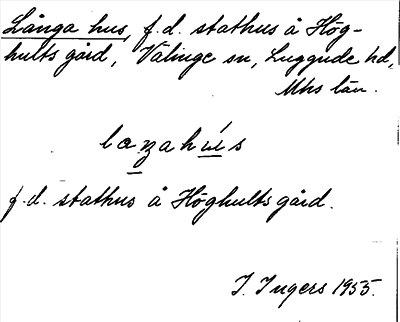 Långa hus, f.d. stathus å Hög-
hults gård, Välinge sn, Luggude hd,
Mhs län.
laŋahús
f.d. stathus å Höghults gård.
I. Ingers 1955.